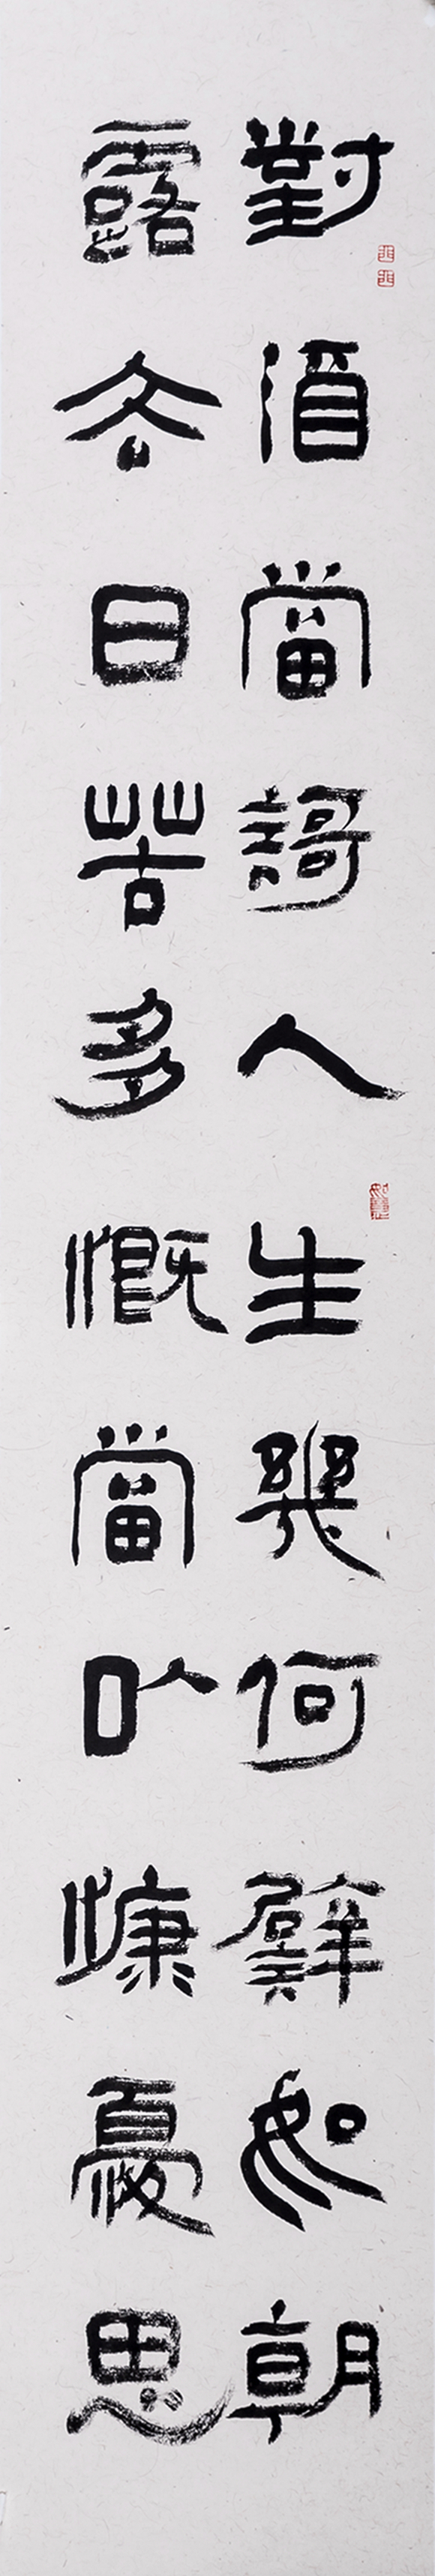 對酒當謌人生幾何譬如朝
露去日苦多慨當以慷憂思